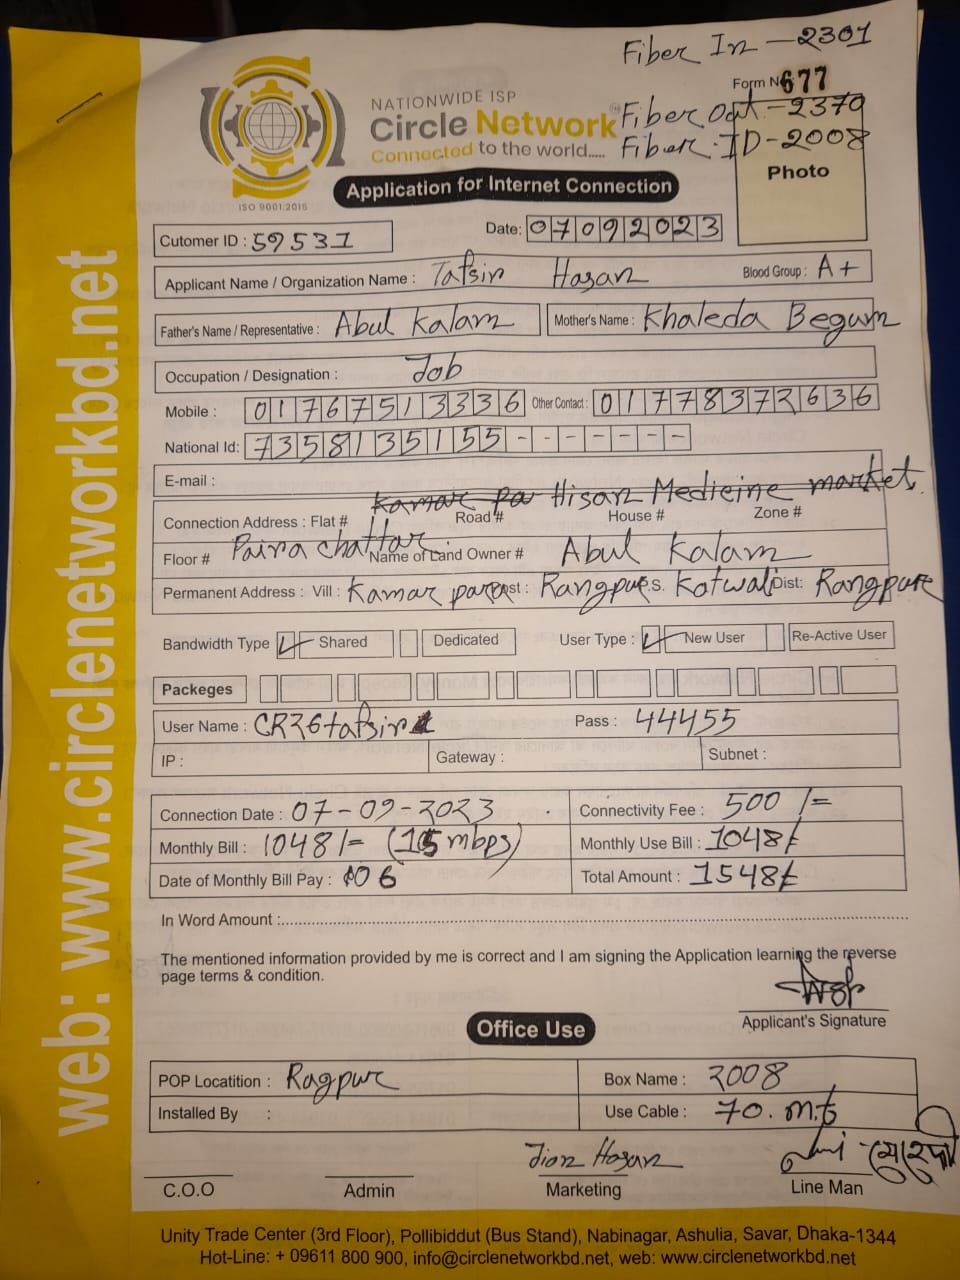 Fiber In - 2301
Form No 677
NATIONWIDE ISP
Circle Network
Connected to the world.....
Fiber Out - 2379
Fiber ID - 2008
Photo
ISO 9001:2015
Application for Internet Connection
Cutomer ID : 59531
Date: 07092023
Applicant Name / Organization Name : Tafsir Hasan Blood Group : A+
Father's Name / Representative : Abul Kalam Mother's Name : Khaleda Begum
Occupation / Designation : Job
Mobile : 01767513336 Other Contact : 01778372636
National Id: 7358135155 - - - - - - -
E-mail :
Kamar pa Hisan Medicine market
Connection Address : Flat # Road # House # Zone #
Floor # Paira chattar Name of Land Owner # Abul Kalam
Permanent Address : Vill : Kamar para Post : Rangpur P.S. Kotwali Dist: Rangpur
Bandwidth Type Shared Dedicated User Type : New User Re-Active User
Packeges
User Name : CR36tafsir Pass : 44455
IP : Gateway : Subnet :
Connection Date : 07-09-2023 Connectivity Fee : 500/=
Monthly Bill : 1048/= (15 mbps) Monthly Use Bill : 1048/-
Date of Monthly Bill Pay : 06 Total Amount : 1548/-
In Word Amount :
The mentioned information provided by me is correct and I am signing the Application learning the reverse
page terms & condition.
Applicant's Signature
Office Use
POP Locatition : Ragpur Box Name : 2008
Installed By : Use Cable : 70. mt
Jion Hasan
C.O.O Admin Marketing Line Man
Unity Trade Center (3rd Floor), Pollibiddut (Bus Stand), Nabinagar, Ashulia, Savar, Dhaka-1344
Hot-Line: + 09611 800 900, info@circlenetworkbd.net, web: www.circlenetworkbd.net
web: www.circlenetworkbd.net